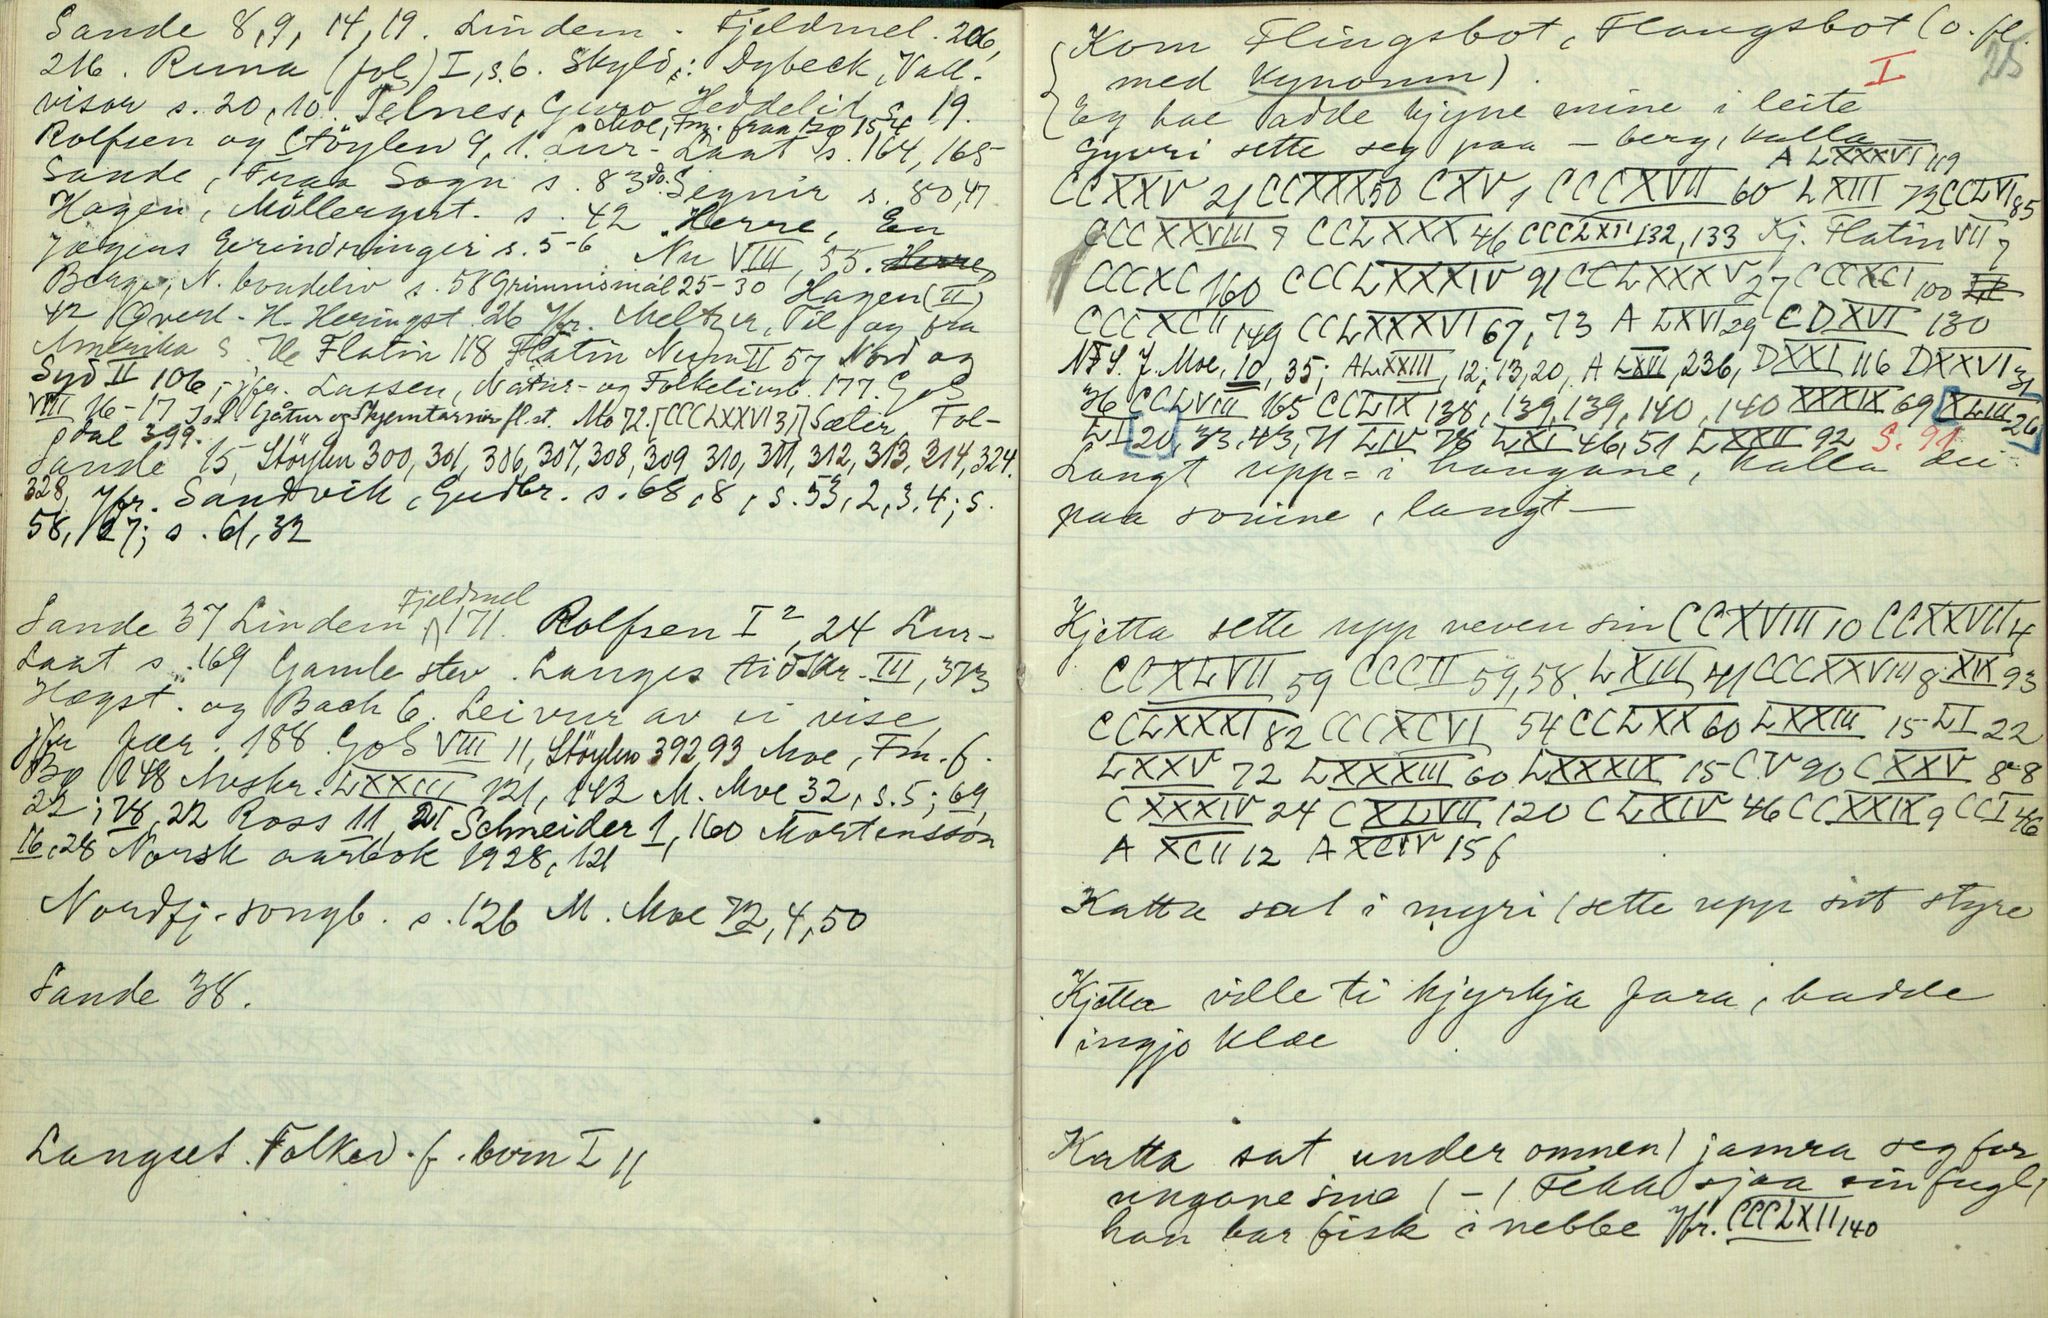 Sande 8, 9, 14, 19. Lindem. Fjeldmel. 206,
216. Runa (fol) I, s. 6. Skyld; Dybeck, Vall-
visor s. 20, 10. Telnes, Guro Heddelid, s. 19.
Moe, Fm. fraa Bø 154
Rolfsen og Støylen 9, 1. Lur-Laat s. 164, 165
Sande, Fraa Sogn s. 83 do. Segnir s. 80, 47.
Hagen, Möllergut. s. 42 Herre, En
Jægers Erindringer s. 5-6 Nu VIII, 55. Herre,
Berge, N. bondeliv s. 58 Grimnismål 25-30 Hagen (II)
42 Qverl. H. Heringst. 26 Jfr. Meltzer, Til og fra
Amerika S. Flatin 118 Flatin Nisser II 57 Nord og
Syd II 106; jfr. Lassen, Natur- og Folkelivsb. 177. GoS
VIII 16-17 Gåtur og Skjemtarvir fl. st. Mo 72. [CCCLXXVI 37] Sæter, Fol-
dal 399.
Sande 15, Støylen 300, 301, 306, 307, 308, 309 310, 311, 312, 313, 314, 324.
328, Jfr. Sandvik, Gudbr. s. 68, 8, s. 53, 2, 3, 4; s.
58, 27; s. 61, 32
Fjeldmel
Sande 37 Lindem 171. Rolfsen I 2, 24 Lur-
Laat s. 169 Gamle stev. Langes tidskr. III, 373
Hægst. og Bach 6. Leivur av ei vise,
jfr Fær. 188 GoS VIII 11, Støylen 392, 93 Moe, Fm. f.
Bø 148 Mnskr. LXXIII 121, 142 M. Moe 32, s. 5; 69,
22; 78, 22 Ross 11, 21 Schneider 1, 160 Mortensson
16, 28 Norsk aarbok 1928, 121
Nordfj. songb. s. 126 M. Moe 72, 4, 50
Sande 38.
Langset. Folked. f. born I 11
Kom Flingsbot, Flangsbot (o. fl.
25
med kynom).
I
Eg hae adde kjyne mine i leite
Gyvri sette seg paa – berg, kalla
A LXXXVI 119
CCXXV 21 CCXXX 50 CXV 1 CCCXVII 60 LXIII 73 CCLVI 85
CCCXXVIII 7 CCLXXX 46 CCCLXII 132, 133 Kj. Flatin VII 7
CCCXC 160 CCCLXXXIV 91 CCLXXXV 27 CCCXCI 100
CCCXCII 149 CCLXXXVI 67, 73 A LXVI 29 CDXVI 130
NFS. J. Moe, 10, 35; ALXXIII, 12; 13, 20, A LXVI, 236, DXXI 116 DXXVI 31
H6 CCLVIII 165 CCLIX 138, 139, 139, 140, 140 XXXIX 69 XLIII 26
LI 20, 33, 43, 71 LIV 78 LXI 46, 51 LXXII 92 S. 91
Langt upp i haugane, kalla dei
paa sonine, langt –
Kjetta sette upp veven sin CCXVIII 10 CCXXVII 4
CCXLVII 59 CCCII 59, 58. LXIII 41 CCCXXVIII 8 XIX 93
CCLXXXI 82 CCCXCVI 54 CCLXX 60 LXXIII 15 LI 22
LXXV 72 LXXXIII 60 LXXXIX 15 CV 90 CXXV 88
CXXXIV 24 CXLVII 120 CLXIV 46 CCXXIX 9 CCI 46
A XCII 12 A XCIV 156
Katta sat i myri / sette upp sit styre
Kjetta ville ti kjyrkja fara, hadde
ingjo klæ
Katta sat under omnen / jamra seg for
ungane sine / – / Fekk sjaa ein fugl,
han bar fisk i nebbe Jfr. CCCLXII 140